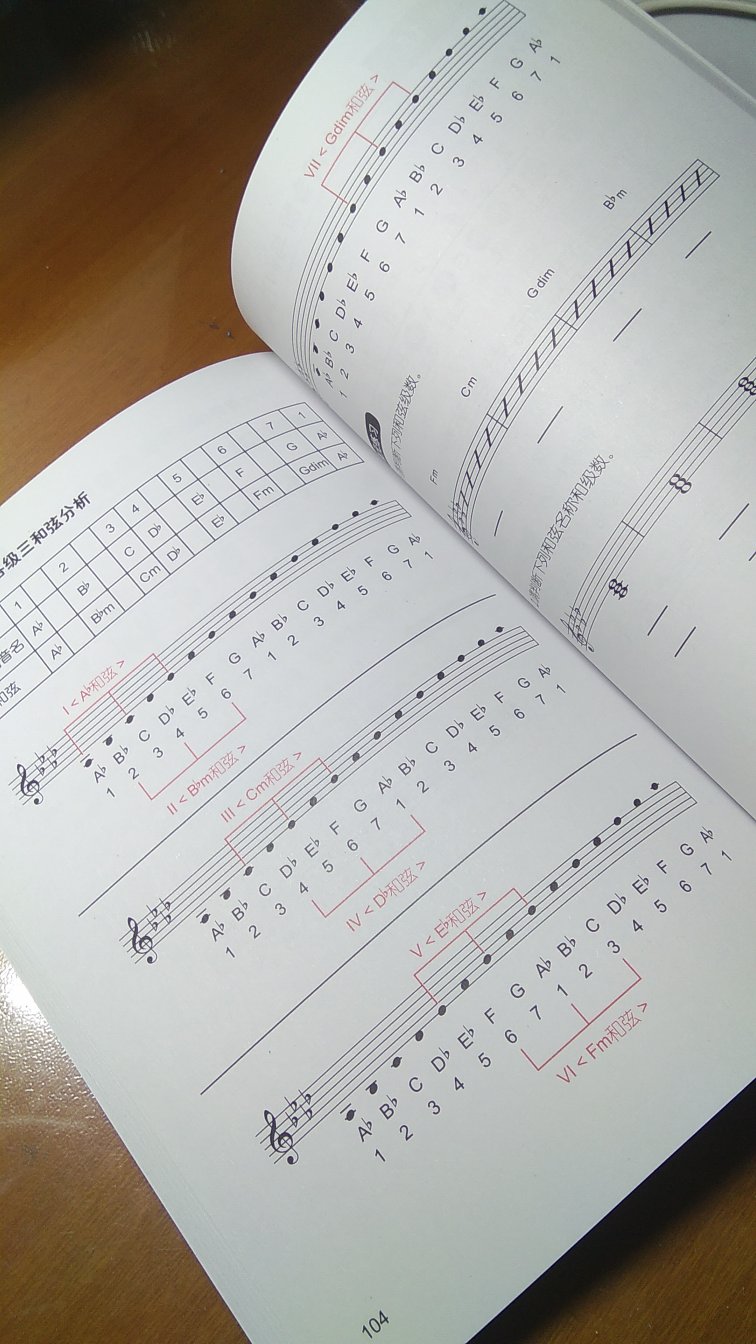 级三和弦分析
1 2 3 4 5 6 7 1
音名 A♭ B♭ C D♭ E♭ F G A♭
和弦 A♭ B♭m Cm D♭ E♭ Fm Gdim A♭
I < A♭和弦 >
A♭ B♭ C D♭ E♭ F G A♭ B♭ C D♭ E♭ F G A♭
1 2 3 4 5 6 7 1 2 3 4 5 6 7 1
II < B♭m和弦 >
III < Cm和弦 >
A♭ B♭ C D♭ E♭ F G A♭ B♭ C D♭ E♭ F G A♭
1 2 3 4 5 6 7 1 2 3 4 5 6 7 1
IV < D♭和弦 >
V < E♭和弦 >
A♭ B♭ C D♭ E♭ F G A♭ B♭ C D♭ E♭ F G A♭
1 2 3 4 5 6 7 1 2 3 4 5 6 7 1
VI < Fm和弦 >
104
VII < Gdim和弦 >
A♭ B♭ C D♭ E♭ F G A♭ B♭ C D♭ E♭ F G A♭
1 2 3 4 5 6 7 1 2 3 4 5 6 7 1
判断下列和弦级数。
Fm Cm Gdim B♭m
判断下列和弦名称和级数。